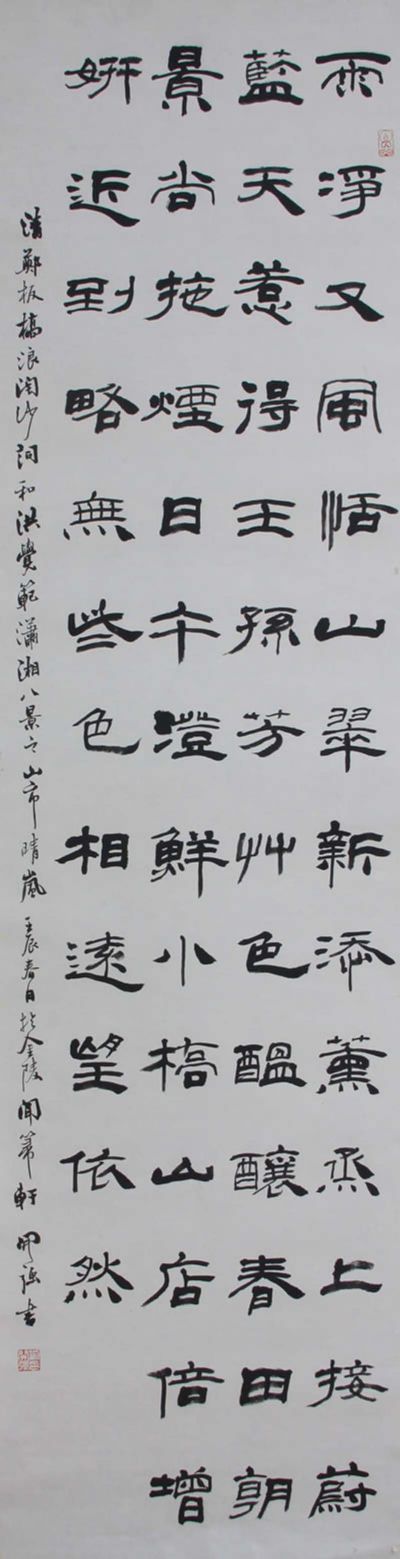 雨淨又風恬山翠新添薰烝上接蔚
藍天惹得王孫芳艸色醞釀春田朝
景尚拖煙日午澄鮮小橋山店倍增
妍近到略無些色相遠望依然
清鄭板橋浪淘沙詞和洪覺範瀟湘八景之山市晴嵐 壬辰春日於金陵聞軒書